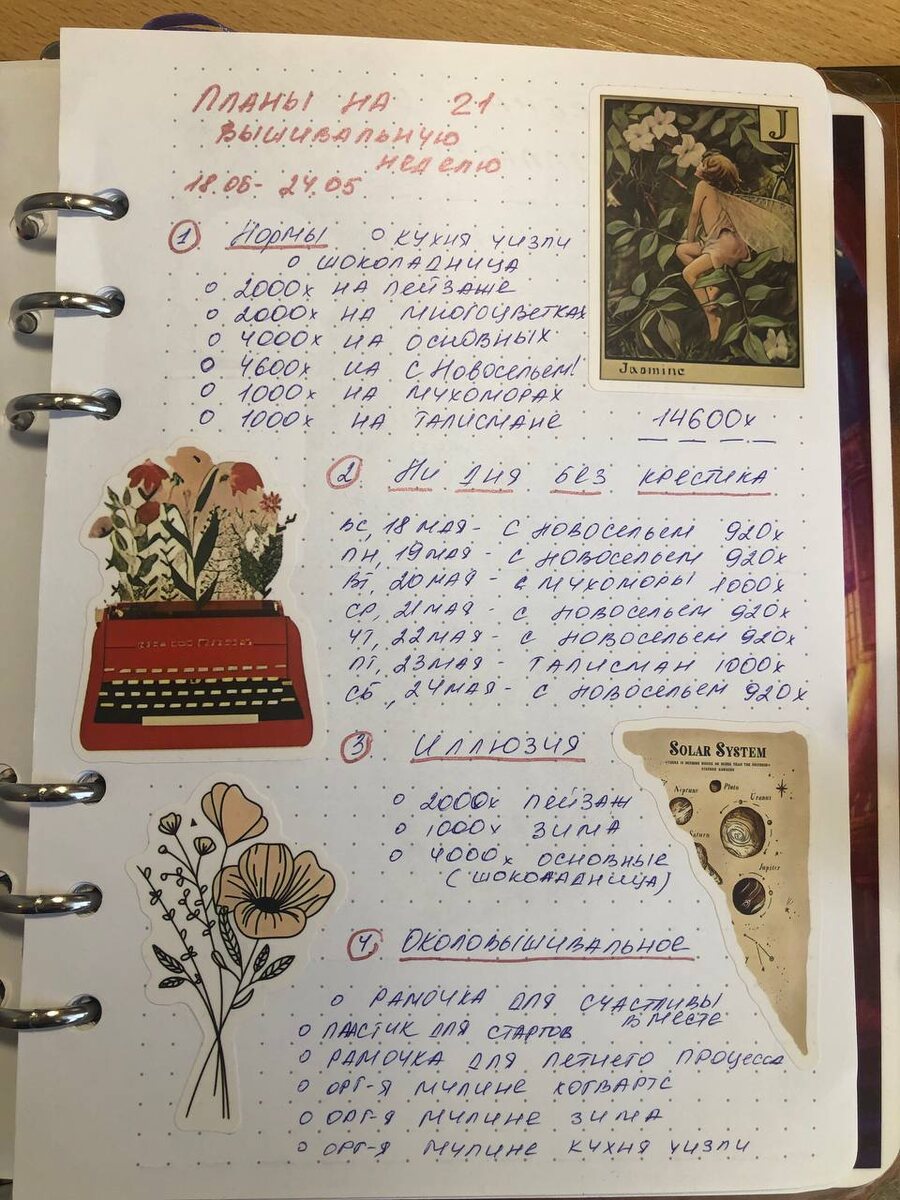 Планы на 21
вышивальную
неделю
18.05- 24.05
J
Jasmine
1 Нормы ○ кухня Уизли
○ шоколадница
○ 2000х на пейзаже
○ 2000х на многоцветках
○ 4000х на основных
○ 4600х на С Новосельем!
○ 1000х на мухоморах
○ 1000х на талисмане 14600х
2 Ни дня без крестика
Вс, 18 мая - С Новосельем 920х
Пн, 19 мая - С Новосельем 920х
Вт, 20 мая - с мухоморы 1000х
Ср, 21 мая - С Новосельем 920х
Чт, 22 мая - С Новосельем 920х
Пт, 23 мая - Талисман 1000х
Сб, 24 мая - С Новосельем 920х
3 Иллюзия
○ 2000х пейзаж
○ 1000х зима
○ 4000х основные
(шоколадница)
SOLAR SYSTEM
Neptune
Pluto
Uranus
Saturn
Jupiter
4. Околовышивальное
○ рамочка для счастливы
вместе
○ пластик для стартов
○ рамочка для летнего процесса
○ орг-я мулине Хогвартс
○ орг-я мулине зима
○ орг-я мулине кухня Уизли